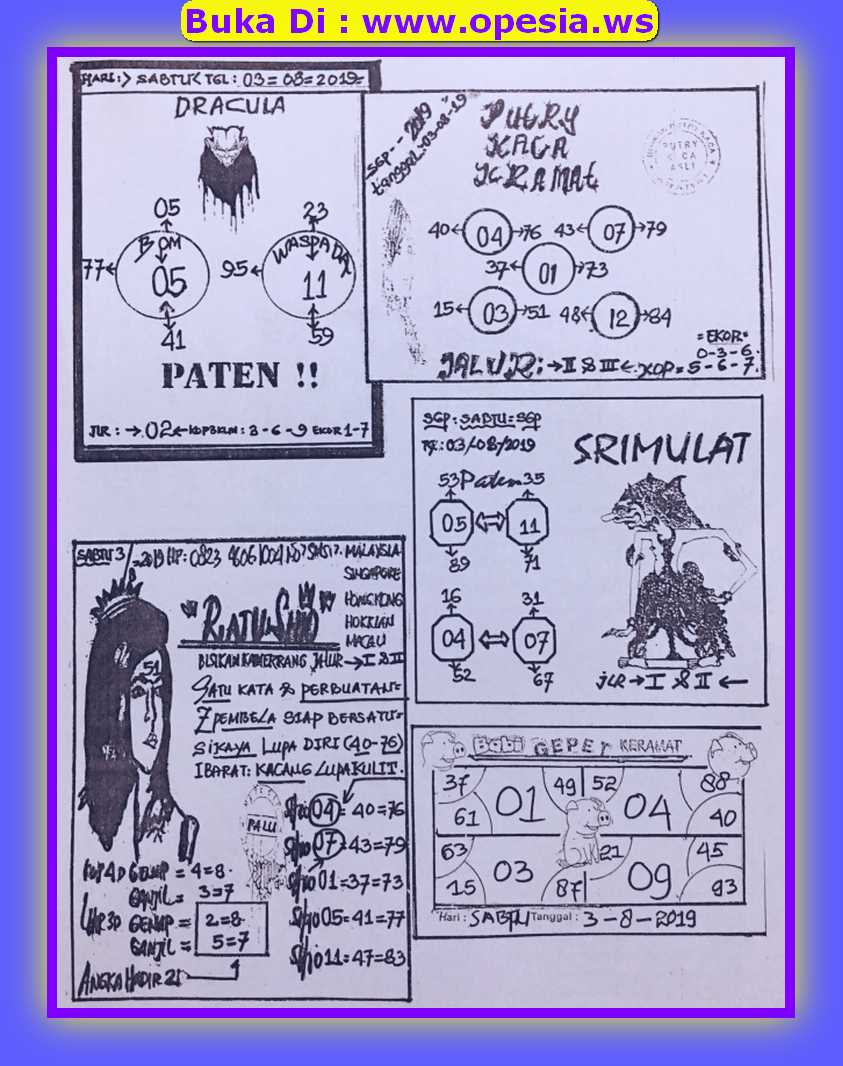 Buka Di : www.opesia.ws
HARI :> SABTU TGL : 03=08=2019=
DRACULA
05
BOM
77
05
41
23
WASPADA
95
11
59
PATEN !!
JLR : → 02 ← KOP BKLN : 3-6-9 EKOR 1-7
SGP -- 2019
tanggal -03-08-19
PUTRY
KACA
KRAMAt
PUTRY
KACA
ASLI
40 04 76
43 07 79
37 01 73
15 03 51
48 12 84
=EKOR=
0-3-6.
JALUR: → II & III ← KOP = 5-6-7.
SGP : SABTU = SGP
TG : 03/08/2019
SRIMULAT
53 Paten 35
05 11
89 71
16 31
04 07
52 67
JLR → I & II ←
SABTU 3
=2019 HP: 0823 4606 1004
MALAYSIA
SINGAPORE
HONGKONG
HOKKIAN
MACAU
"RATU SHIO"
JALUR → I & II
51
SATU KATA & PERBUATAN=
7 PEMBELA SIAP BERSATU=
SIKAYA LUPA DIRI (40-76)
IBARAT: KACANG LUPA KULIT.
PALU
Shio 04 = 40=76
Shio 07 = 43=79
Shio 01 = 37=73
Shio 05 = 41=77
Shio 11 = 47=83
KOP 4D GENAP = 4=8.
GANJIL = 3=7
3D GENAP = 2=8.
GANJIL = 5=7
ANGKA HADIR 21
Babi GEPEY KERAMAT
37 01 49 52 04 88
61 40
63 03 21 09 45
15 87 93
Hari : SABTU Tanggal : 3-8-2019